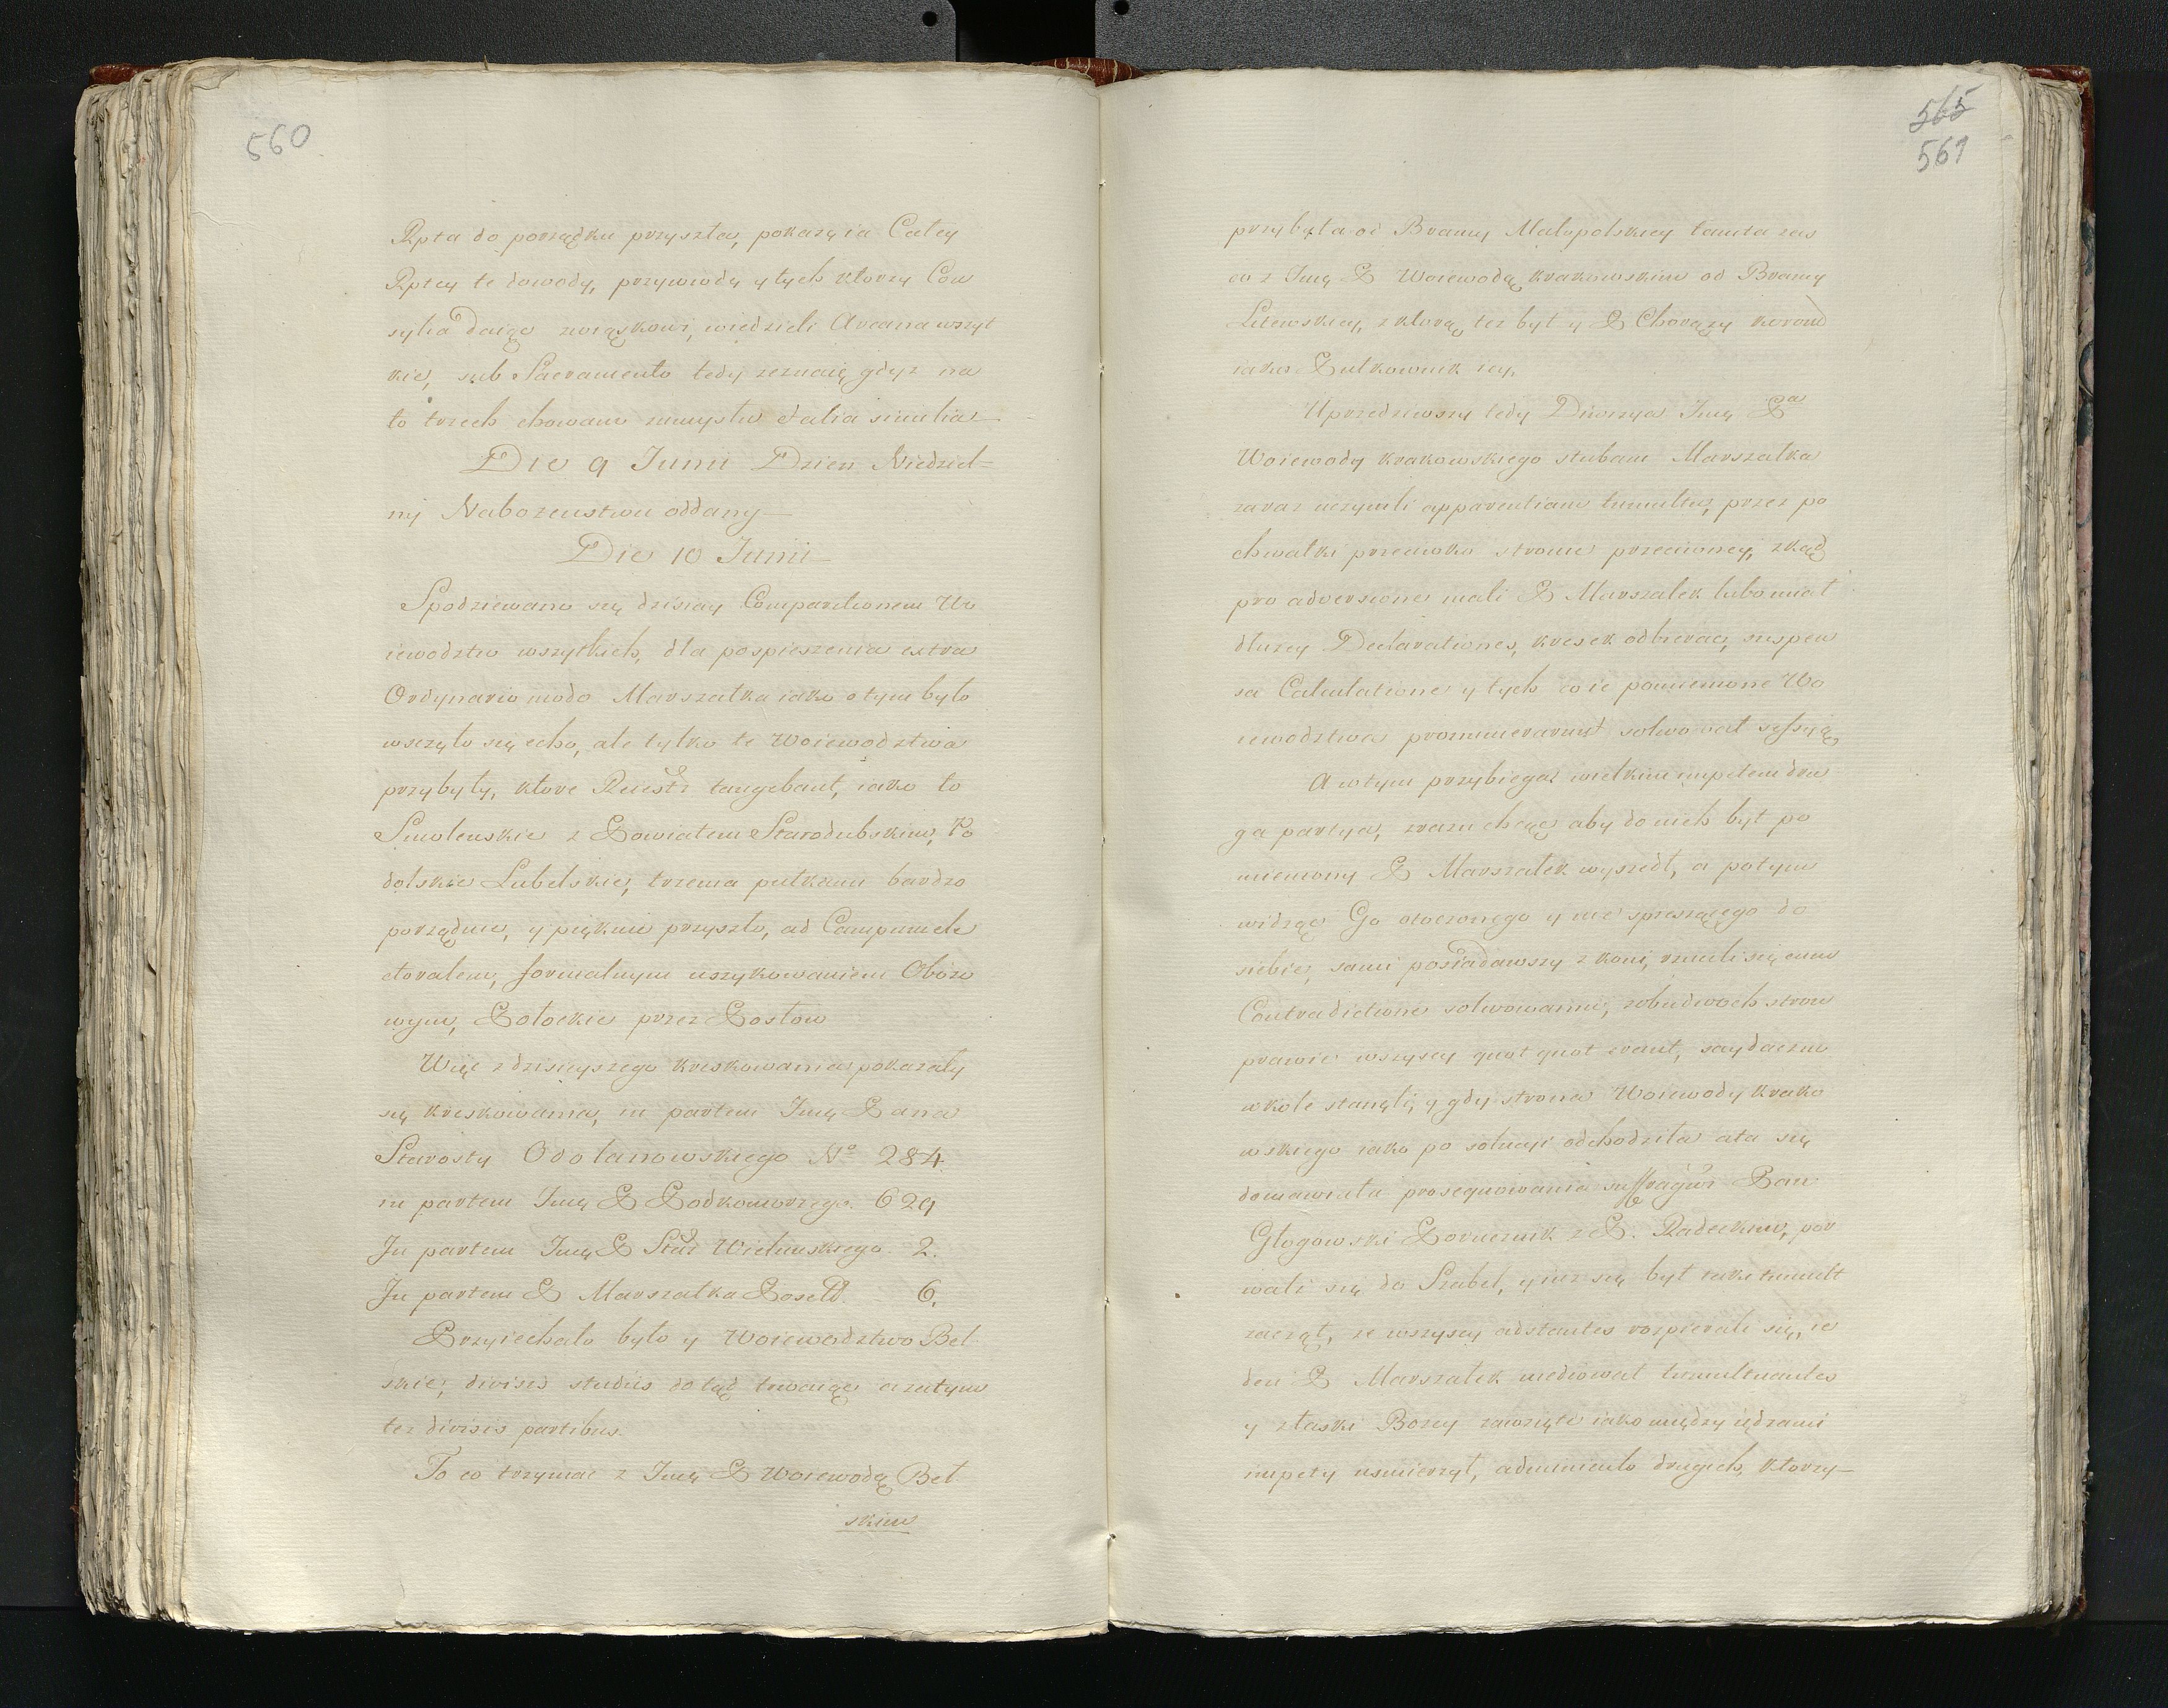 560
Rpta do porządku przyszła, pokażę ia Całey
Rptey te dowody, przywiodę y tych ktorzy Con
sylia daiąc związkowi, wiedzieli Arcana wszyt
kie, sub Sacramento tedy zeznaię gdyż na
to trzech chowam umysłu talia similia
Die 9 Junii Dzien Niedziel=
ny Nabozenstwu oddany
Die 10 Junii
Spodziewano się dzisiay Comparitionem Wo
iewodztw wszytkich, dla pospieszenia extra
Ordynario modo Marszałka iako o tym było
wszczęło się echo, ale tylko te Woiewodztwa
przybyły, ktore Ruesti tangebant, iako to
Smolenskie z Powiatem Starodubskim, Po
dolskie Lubelskie, trzema pułkami bardzo
porządnie, y pięknie przyszło, ad Campum ele
ctoralem, formalnym uszykowaniem Obozo
wym, Połockie przez Posłow
Więc z dzisieyszego kreskowania pokazały
się kreskowania, in partem Jmę Pana
Starosty Odolanowskiego No 284
in partem Jmę P Podkomorzego. 629
In partem Jmę P Star Wielunskiego. 2.
In partem P Marszałka Poselt. 6.
Przyiechało było y Woiewodztwo Beł
skie, divisis studiis dotąd trwaiąc a zatym
też divisis partibus.
To co trzymać z Jmę P Woiewodą Beł
skim
565
561
przybyła od Bramy Małopolskiey tamta zaś
co z Jmę P Woiewodą krakowskim od Bramy
Litewskiey, z ktorą też był y P Chorąży korond
iako Pułkownik iey.
Uprzedziwszy tedy Dworzya Jmę Pa
Woiewody krakowskiego stubam Marszałka
zaraz uczynili apparentiam tumultus, przez po
chwałki przeciwko stronie przeciwney, zkąd
pro adversione mali P Marszałek lubo miał
dłużey Declarationes, kresek odbierać, suspen
sa Calculatione y tych co ie pomienione Wo
iewodztwa pronumerarunt solwował sessyą
A wtym przybiegaż wielkim impetem dru
ga partya, zrazu chcąc aby do nich był po
mieniony P Marszałek wyszedł, a potym
widząc Go otoczonego y nie spieszącego do
siebie, sami posiadawszy z koni, rzucili się cum
Contradictione solwowaniu, z obudwoch stron
prawie wszyscy quot quot erant, saydaczno
w kole stanęli, y gdy strona Woiewody krako
wskiego iako po solucyi odchodziła ata się
domawiała prosequowania suffragiów Pan
Głogowski Porucznik z P. Radeckim, por
wali się do Szabel, y iuż się był taki tumult
zaczął, że wszyscy adstantes rozpierali się, ie
den P Marszałek mediował tumultuantes
y z łaski Bozey zawzięte iako między iędzami
impety usmierzył, adminiculo drugich, ktorzy